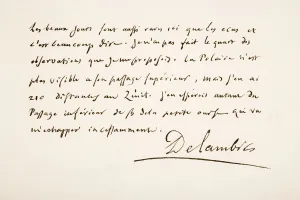 Les beaux jours sont aussi rares ici que les écus et
c'est beaucoup dire. Je n'ai pas fait le quart des
observations que je me proposois. La Polaire n'est
plus visible a son passage supérieur, mais j'en ai
210 distances au Zénit. j'en espérois autant du
Passage inférieur de β de la petite ourse qui va
m'échapper incessamment.
Delambre